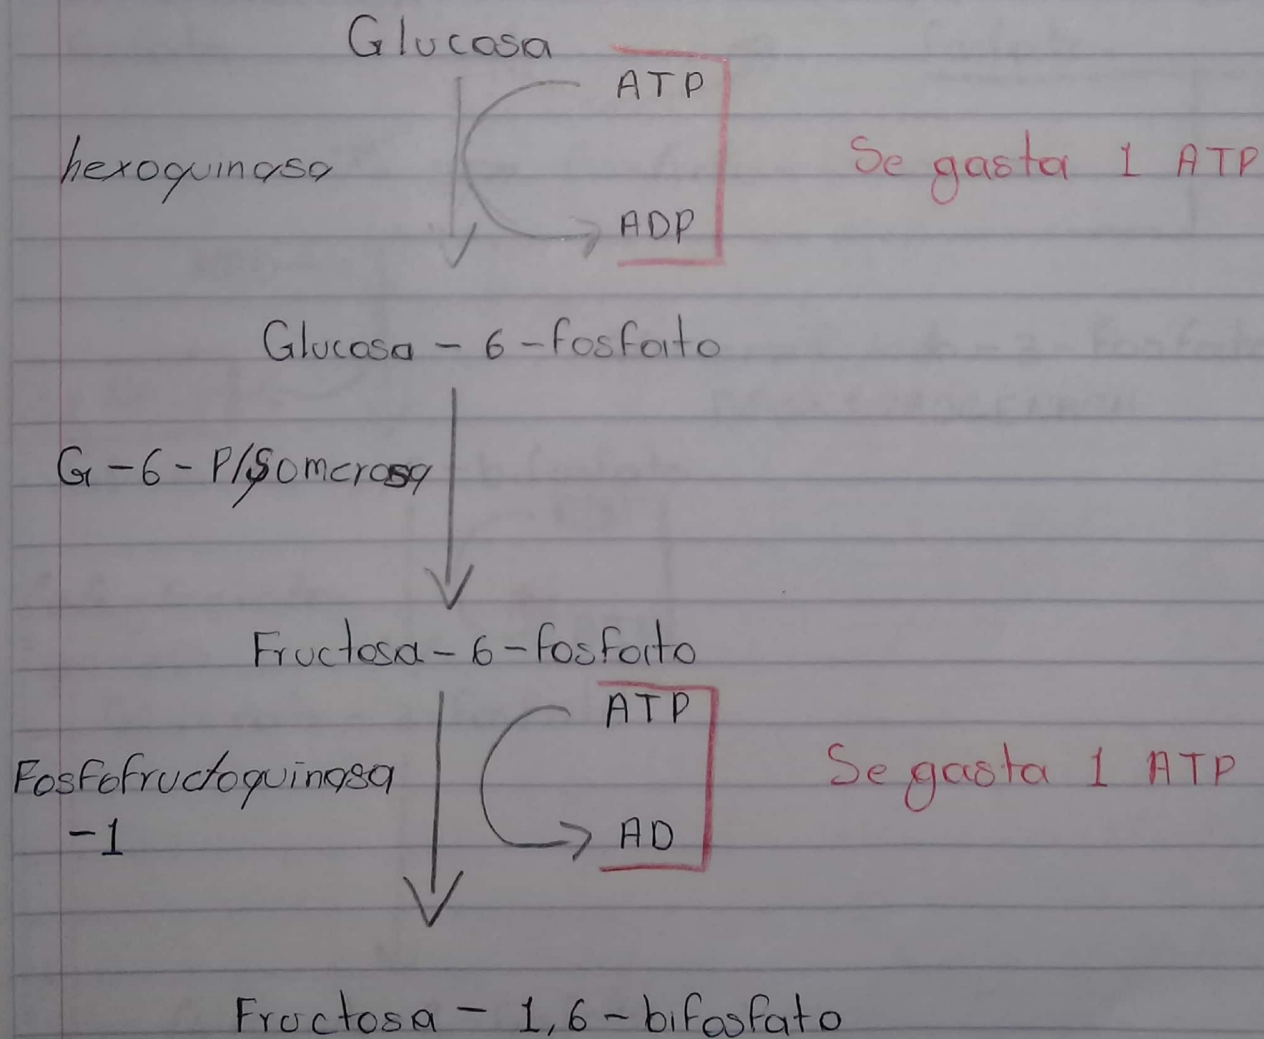 Glucosa
ATP
hexoquinasa
Se gasta 1 ATP
ADP
Glucosa - 6 - fosfato
G - 6 - P/Isomerasa
Fructosa - 6 - fosfato
ATP
Fosfofructoquinasa
Se gasta 1 ATP
-1
AD
Fructosa - 1,6 - bifosfato